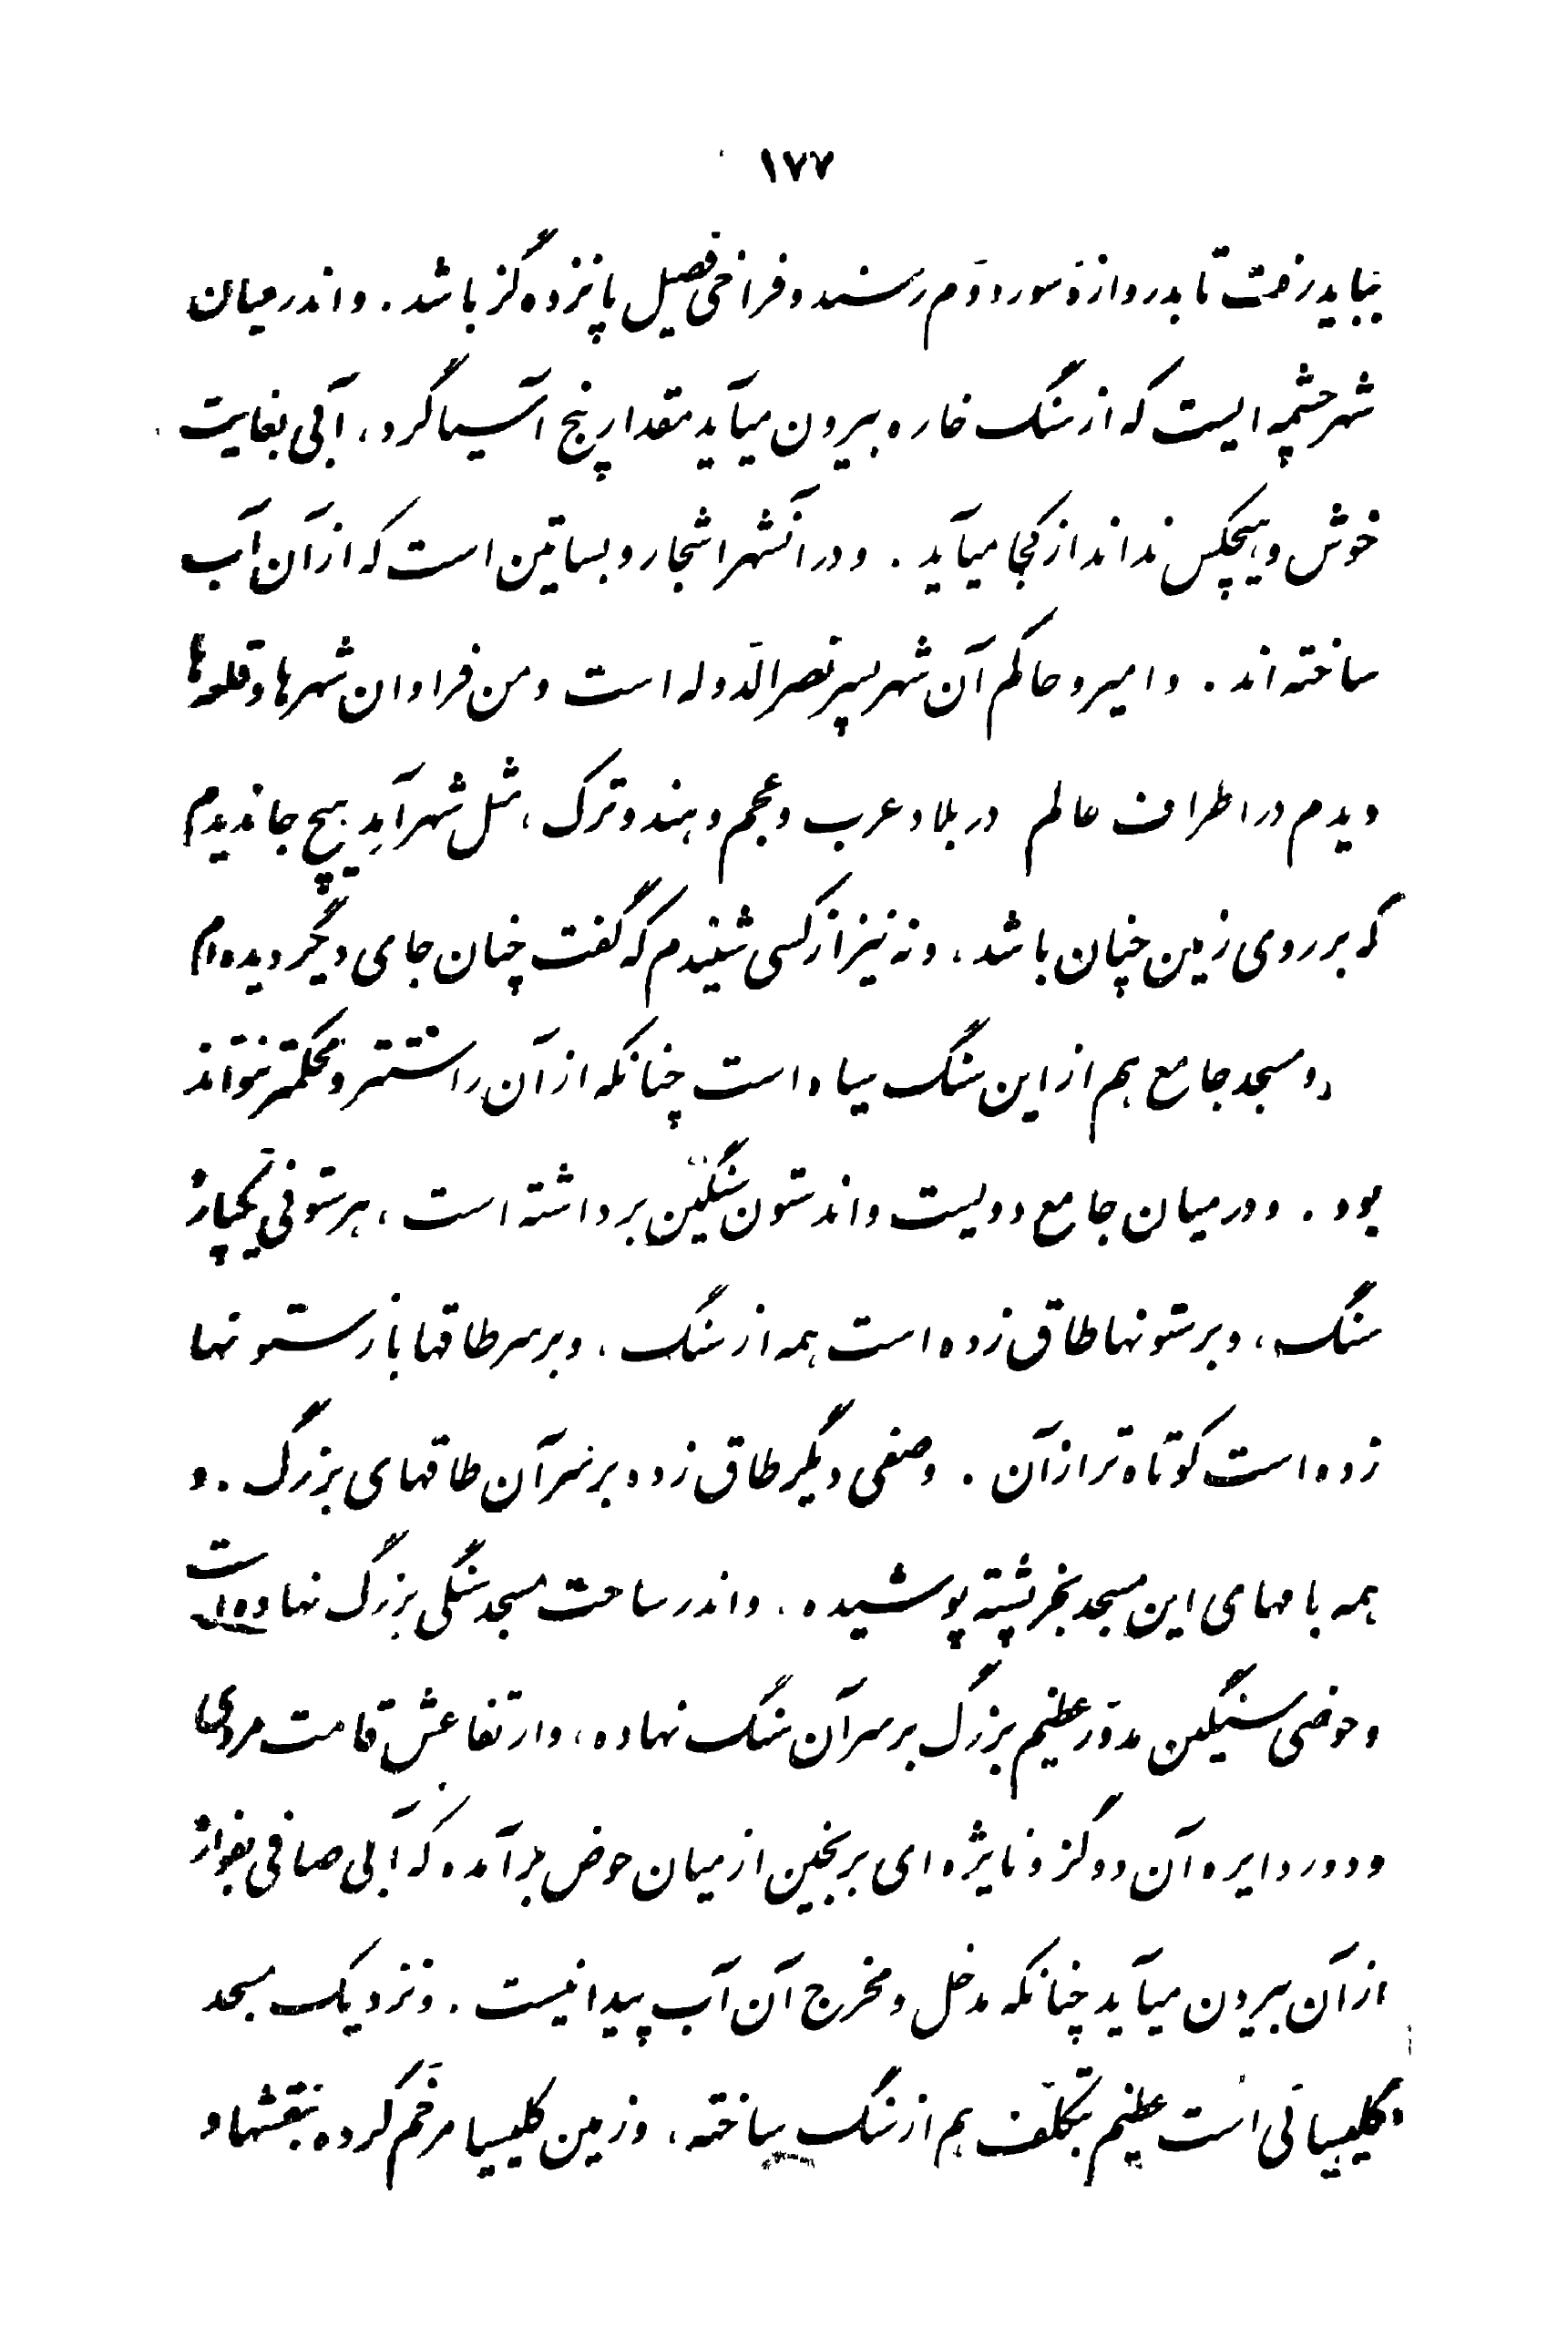 ۱۷۷
بباید رفت تا بدروازهٔ سور دوّم رسند و فراخی فصیل پانزده گز باشد . و اندر میان
شهر چشمه ایست که از سنگ خاره بیرون میآید مقدار پنج آسیا گرد ، آبی بغایت
خوش و هیچکس نداند از کجا میآید . و در آنشهر اشجار و بساتین است که از آن آب
ساخته اند . و امیر و حاکم آن شهر پسر نصر الدّوله است و من فراوان شهرها و قلعه ها
دیدم در اطراف عالم در بلاد عرب و عجم و هند و ترک ، مثل شهر آمِد هیچ جا ندیدم
که بر روی زمین چنان باشد ، و نه نیز از کسی شنیدم که گفت چنان جای دیگر دیده ام
و مسجد جامع هم از این سنگ سیاه است چنانکه از آن راستتر و محکمتر نتواند
بود . و در میان جامع دویست و اند ستون سنگین برداشته است ، هر ستونی یکپاره
سنگ ، و بر ستونها طاق زده است همه از سنگ ، و بر سر طاقها باز ستونها
زده است کوتاه تر از آن . و صفی دیگر طاق زده بر سر آن طاقهای بزرگ . و
همه بامهای این مسجد بخرپشته پوشیده . و اندر ساحت مسجد سنگی بزرگ نهاده است
و حوضی سنگین مدوّر عظیم بزرگ بر سر آن سنگ نهاده ، و ارتفاعش قامت مردی
و دور دایره آن دو گز و نایژه ای برنجین از میان حوض برآمده که آبی صافی بفواره
از آن بیرون میآید چنانکه مدخل و مخرج آن آب پیدا نیست . و نزدیک مسجد
کلیسیائی است عظیم بتکلّف هم از سنگ ساخته ، و زمین کلیسیا مرخّم کرده بنقشها و